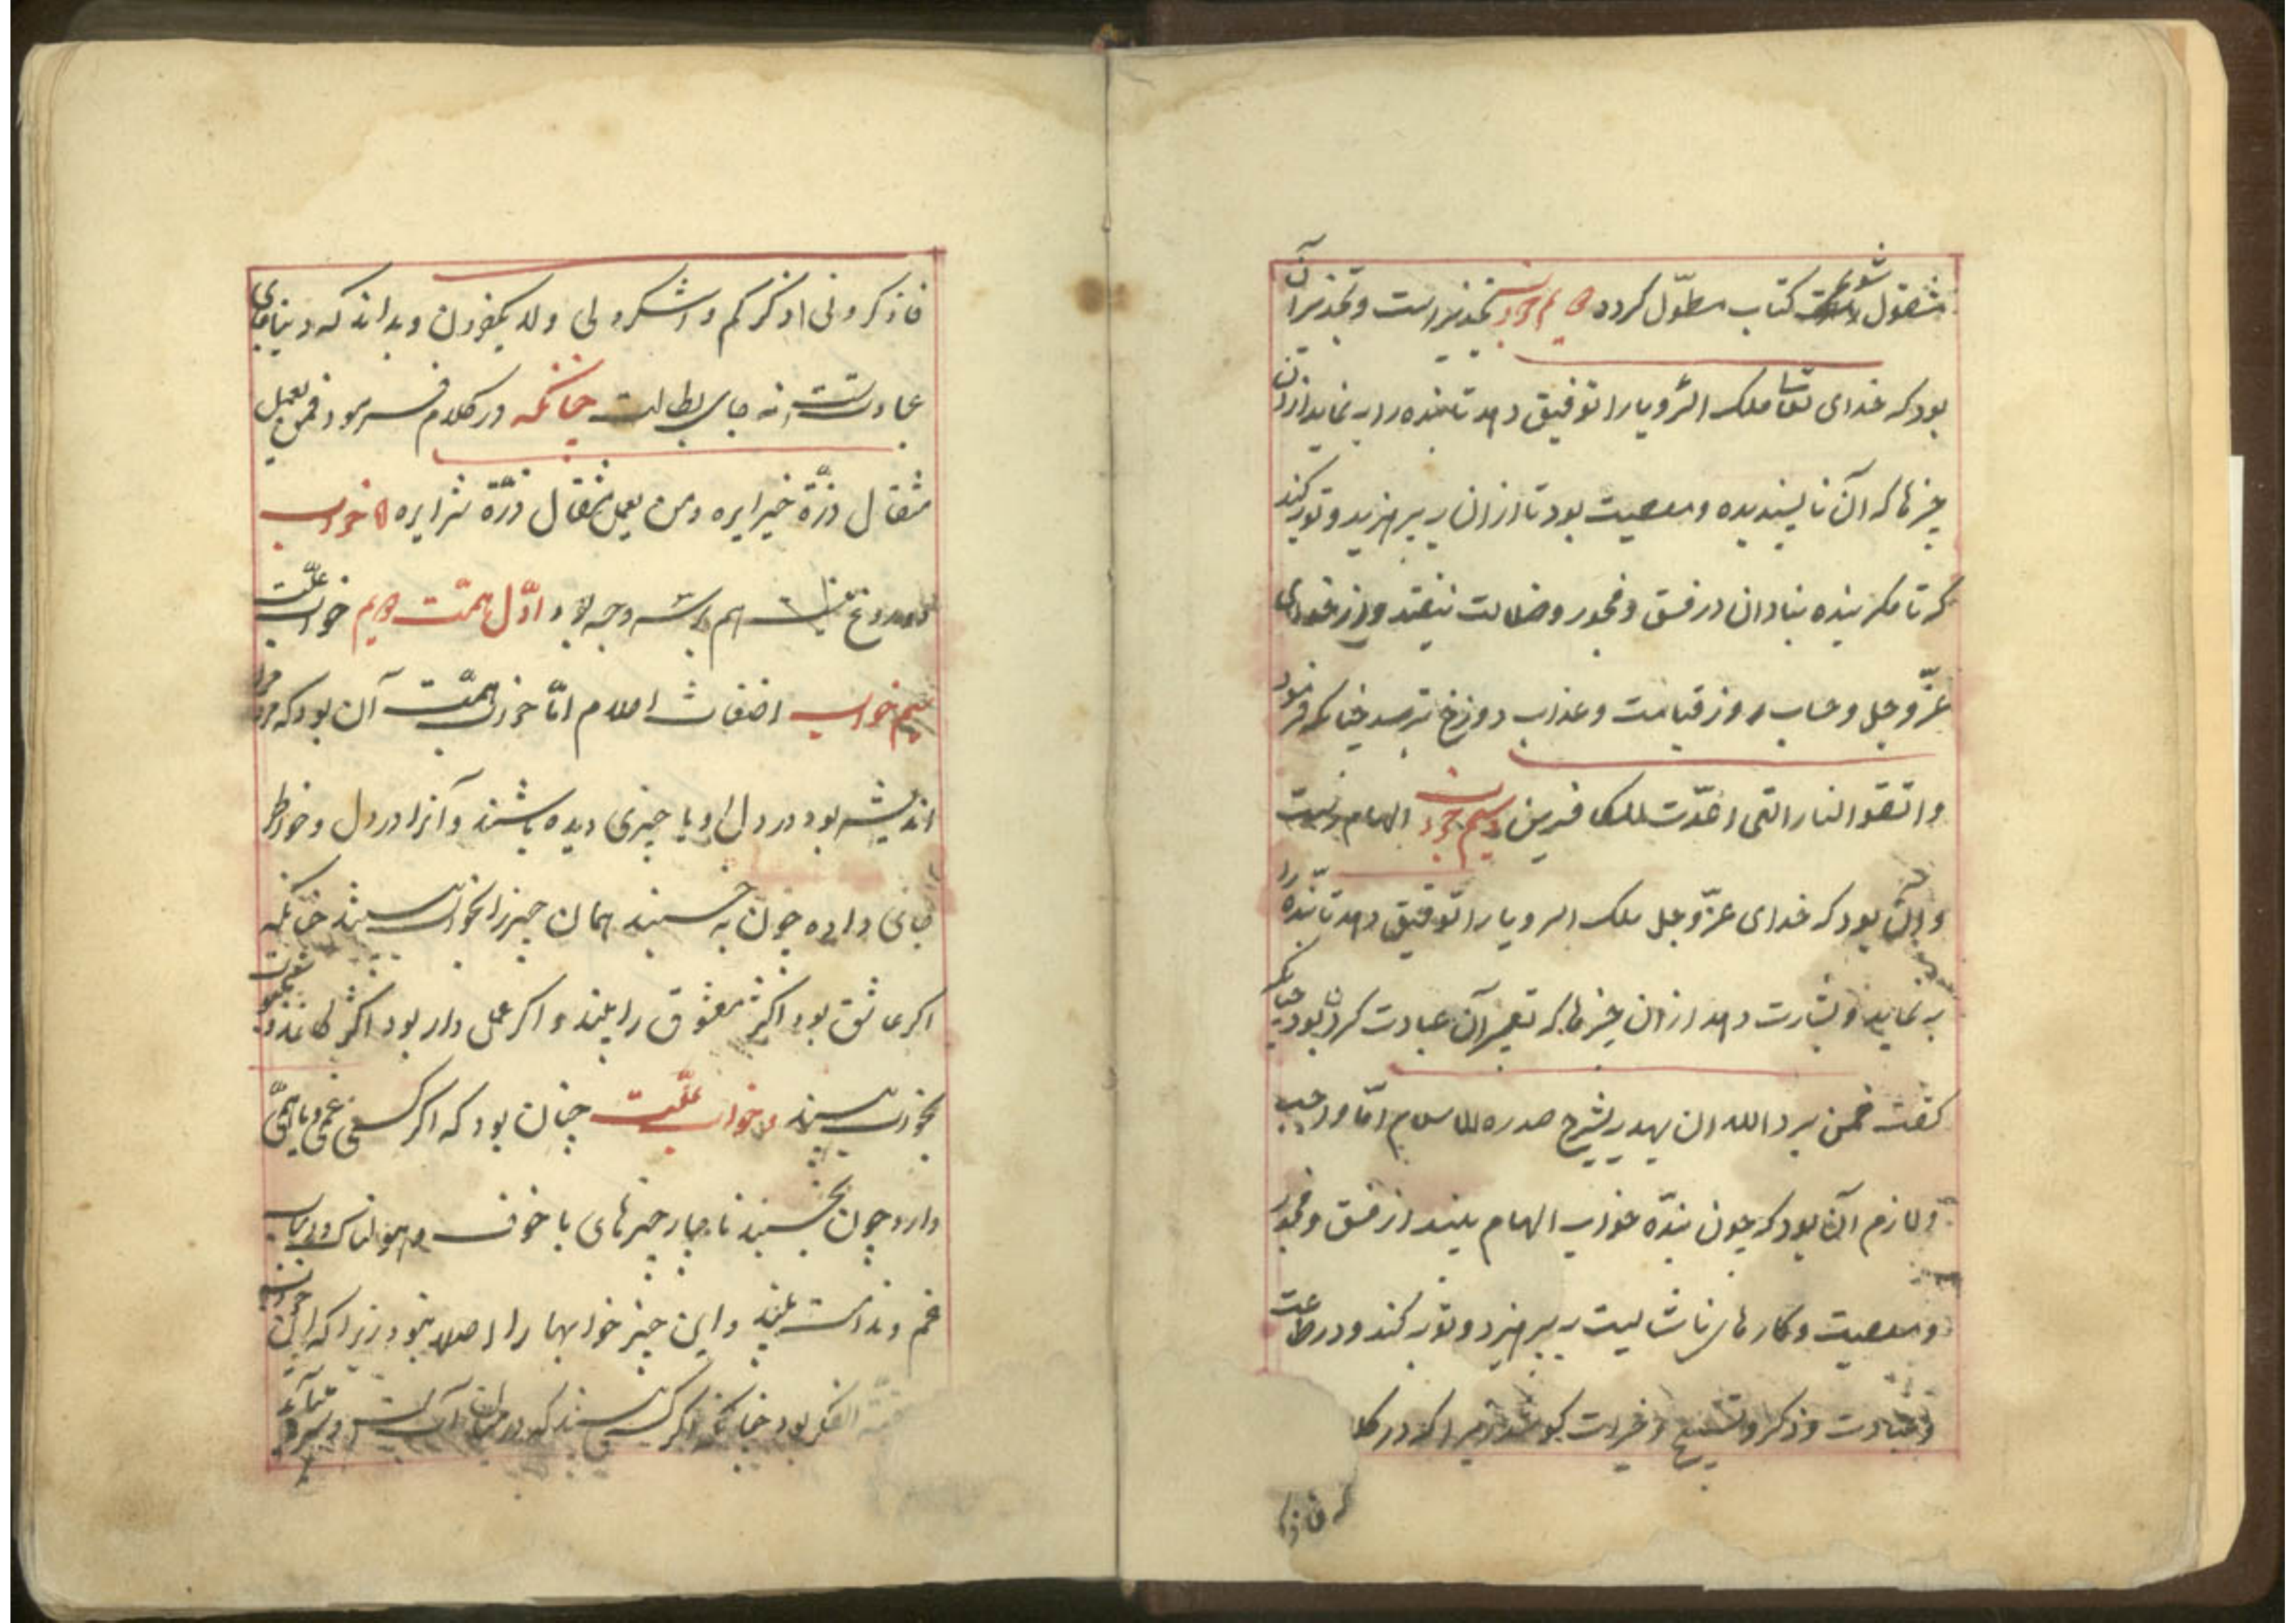 مشغول شویم کتاب مطوّل کردد دویم خواب تحذیر است و تحذیر آن
بود که خدای تعالی ملک الرؤیا را توفیق دهد تا بنده را به نماید از آن
چیزها که آن ناپسندیده و معصیت بود تا از ان بپرهیزید و توبه کند
که تا مکر بنده بنادان در فسق و فجور و ضلالت نیفتد و از خدای
عزّ و جل و حساب روز قیامت و عذاب دوزخ بترسد چنانکه فرمود
واتقو النار التی اعدّت للکافرین سیم خواب الهام است
و آن بود که خدای عزّ و جل ملک الرویا را توفیق دهد تا بنده را
به نماید و بشارت دهد از ان چیزها که تعبیر آن عبادت کردن بود چنانکه
کفت فمن یرد الله ان یهدیه یشرح صدره للاسلام امّا واجب
و لازم آن بود که چون بنده خواب الهام بیند از فسق و فجور
و معصیت و کارهای ناشایست بپرهیزد و توبه کند و در طاعت
و عبادت و ذکر و تسبیح و خیرات کوشد زیرا که در کلا
فاذکر
فاذکرونی اذکرکم واشکرو لی ولا تکفرون و بداند که دنیا جای
عبادتست نه جای بطالت چنانکه در کلام فرمود فمن یعمل
مثقال ذرّة خیرا یره ومن یعمل مثقال ذرّة شرا یره خواب
دروغ هم بر سه وجه بود اوّل همّت دویم خواب علّت
سیم خواب اضغاث احلام امّا خواب همّت آن بود که مرد
اندیشه بود در دل او یا چیزی دیده باشند و آنرا در دل و خواطر
جای داده چون به خسبند همان چیز را بخواب بیند چنانکه
اکر عاشق بود اکثر معشوق را بیند و اکر عمل دار بود اکثر
بخواب بیند و خواب علّت چنان بود که اکر کسی غمی و یا همّی
دارد چون بخسبد ناچار چیزهای با خوف و هولناک و
غم و ندامت بیند و این چنین خوابها را اصلا نبود زیرا که این خواب
الفکر بود چنانکه اکر کسی بیند که در میان آب است و